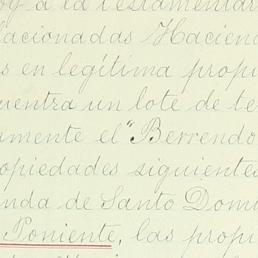 oy á la testamentar
lacionadas Hacien
s en legítima propi
uentra un lote de te
amente el "Berrendo
opiedades siguientes
nda de Santo Domi
Poniente, las propi